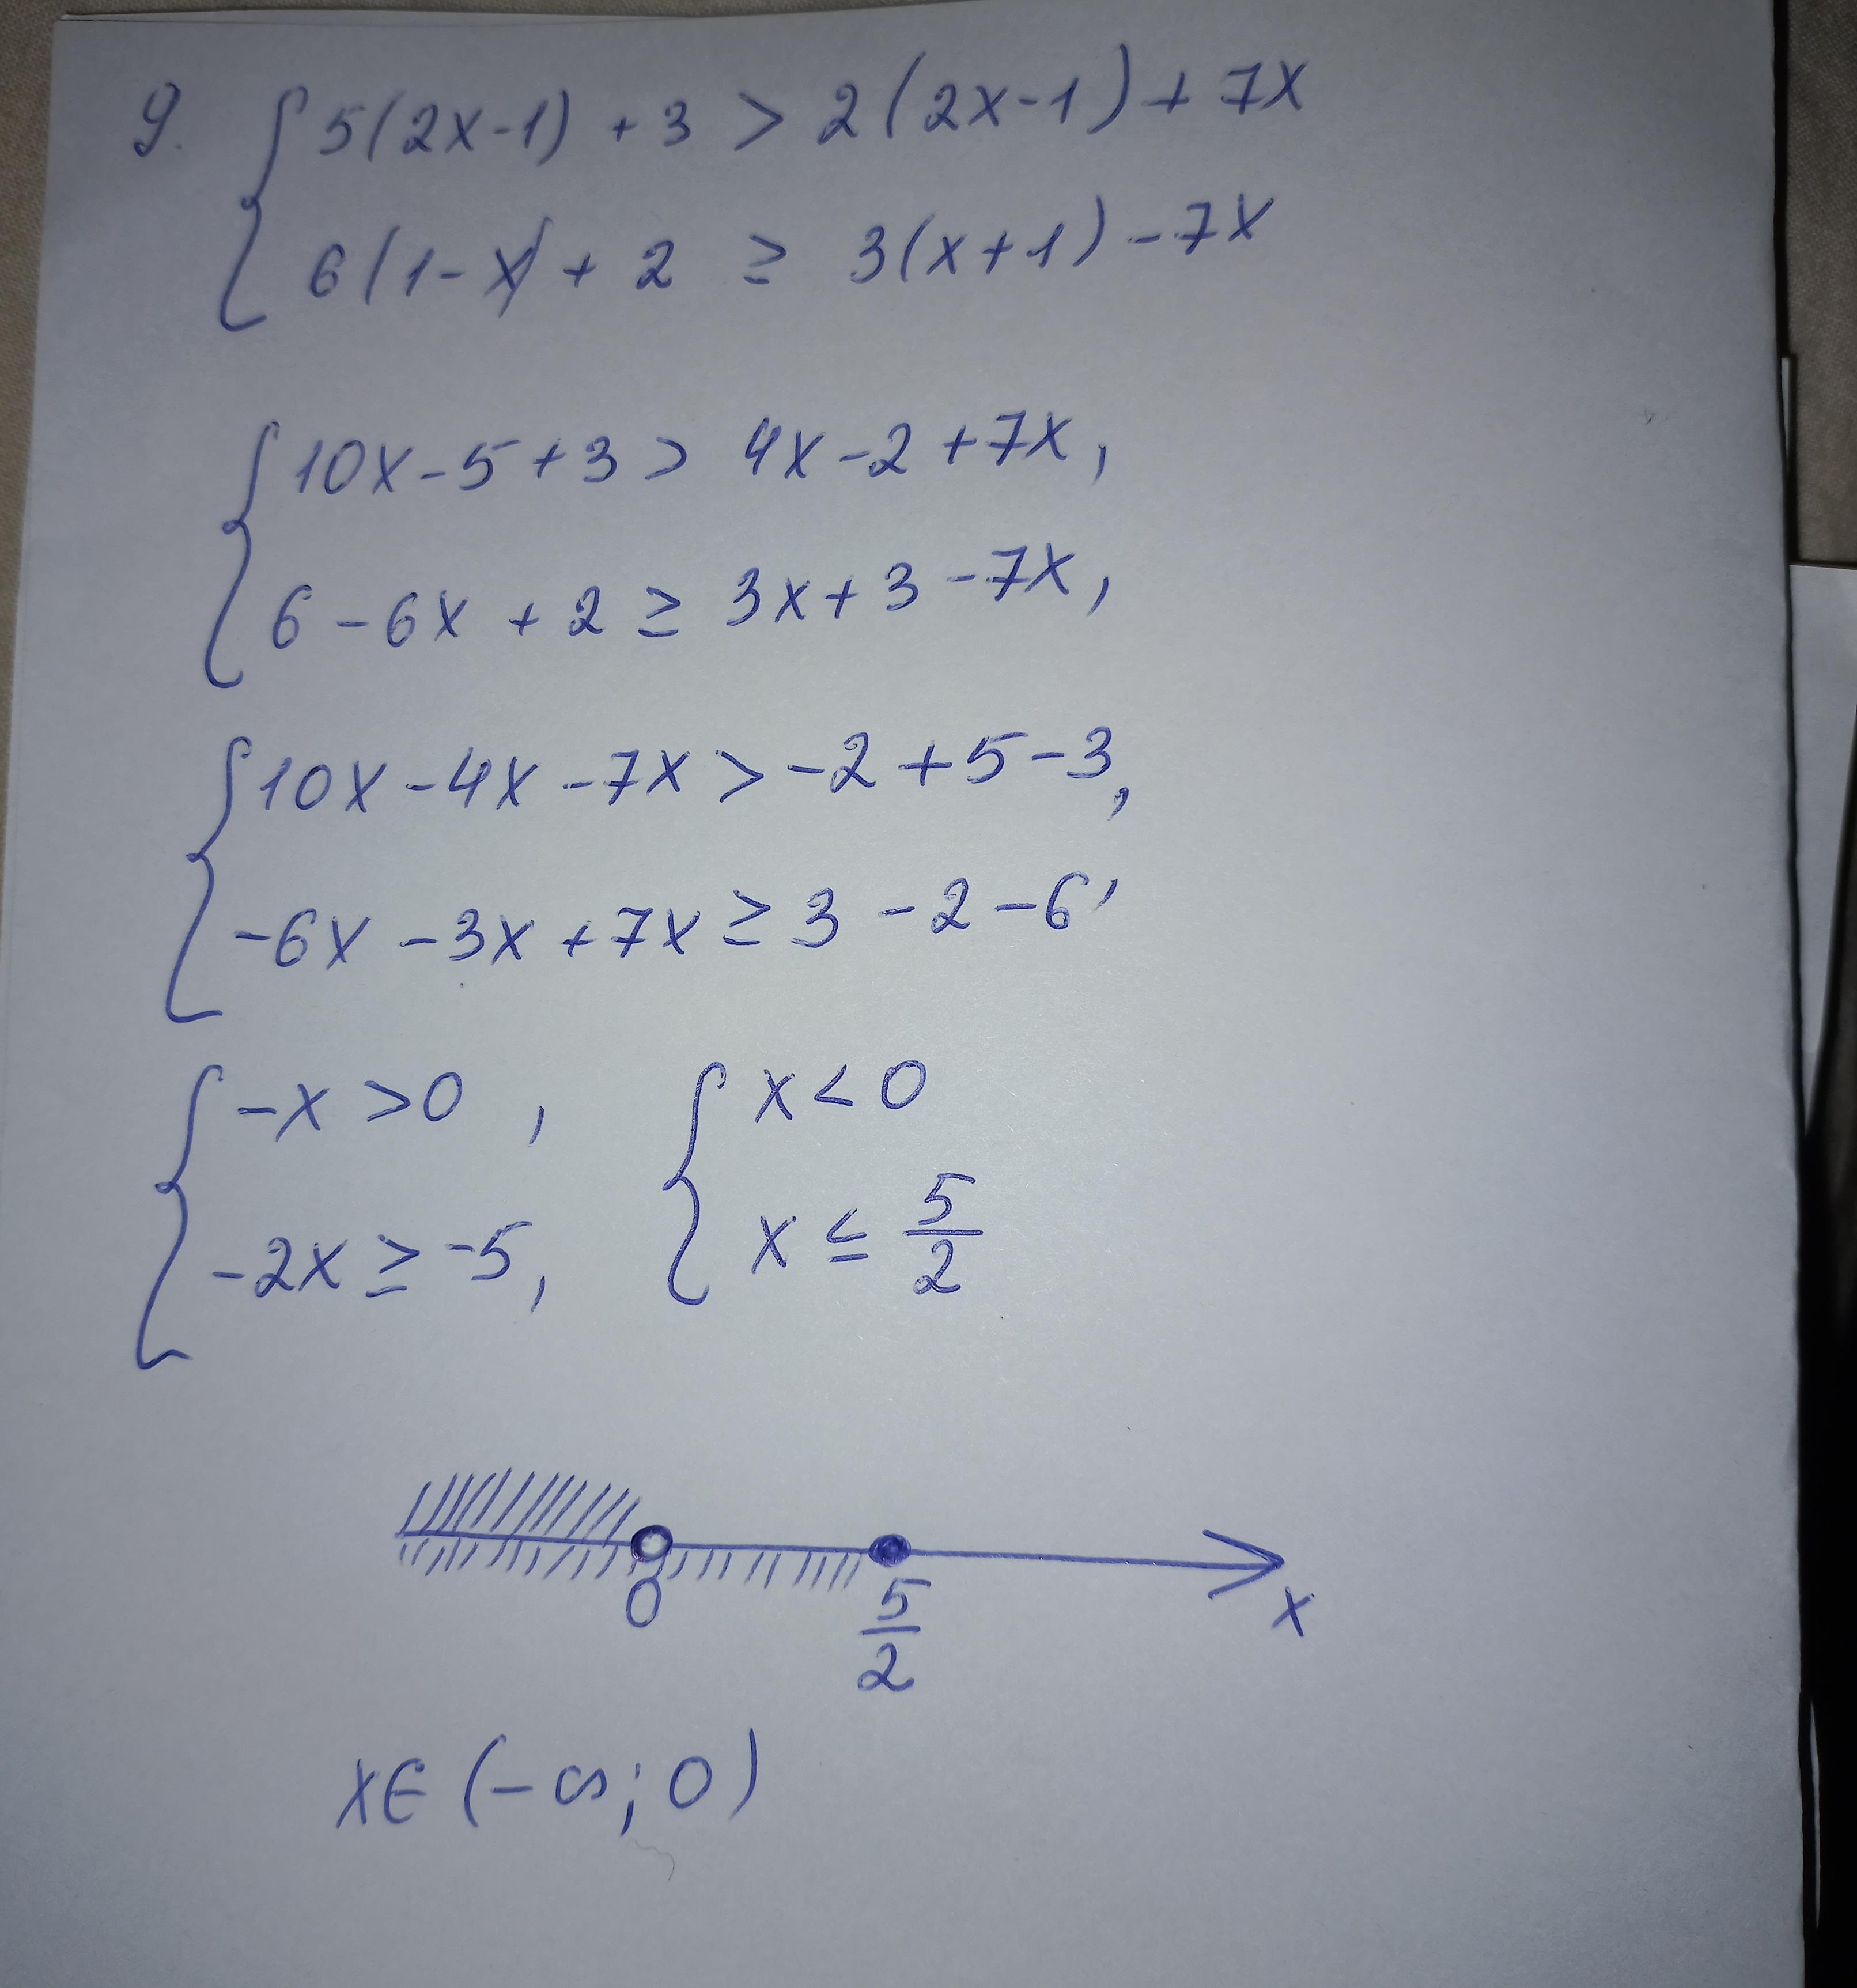 9. { 5(2x-1) + 3 > 2(2x-1) + 7x
6(1-x) + 2 ≥ 3(x+1) - 7x
{ 10x - 5 + 3 > 4x - 2 + 7x,
6 - 6x + 2 ≥ 3x + 3 - 7x,
{ 10x - 4x - 7x > -2 + 5 - 3,
-6x - 3x + 7x ≥ 3 - 2 - 6,
{ -x > 0, { x < 0
-2x ≥ -5, x ≤ 5/2
0 5/2 x
x∈(-∞; 0)